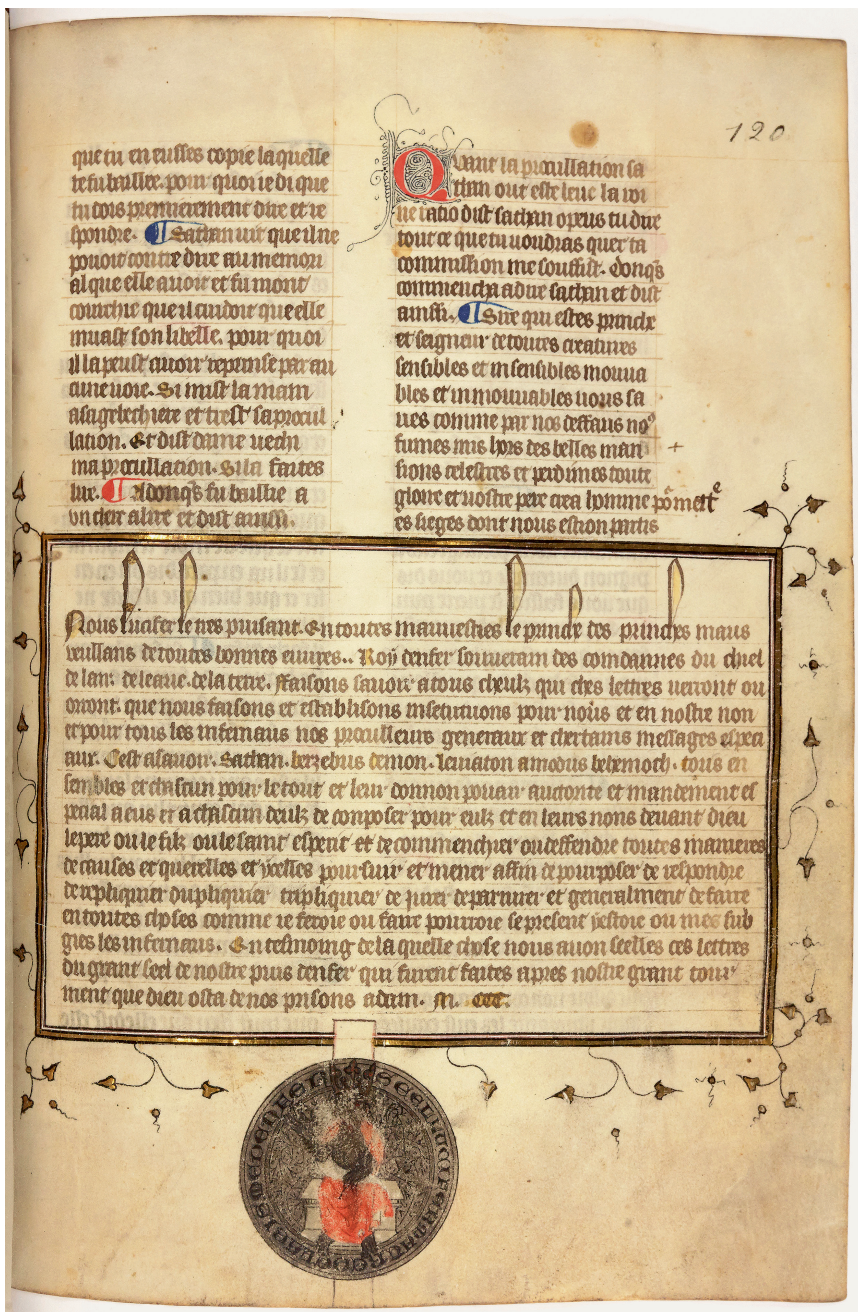 120
que tu en eusses copie la quelle
te fu baillie. pour quoi ie di que
tu dois premierement dire et re
spondre. ¶ Sathan vit que il ne
pouoit contre dire au memori
al que elle auoit et fu mont
courchie que il cuidoit que elle
muast son libelle. pour quoi
il la peust auoir reprinse par au
cune voie. Si mist la main
a sa gibechiere et trest sa procul
lation. Et dist dame vechi
ma procullation. Si la faites
lire. ¶ Adonqs fu baillie a
vn clerc a lire et dist ainssi.
Quant la procullation sa
than out este leue la vir
ge marie dist sathan
tout ce que tu uoudras quer ta
commission me souffist. Donqs
commencha a dire sathan et dist
ainssi. ¶ Sire qui estes prince
et seigneur de toutes creatures
sensibles et insensibles mouua
bles et inmouuables uous sa
ues comme par nos deffaus no⁹
fumes mis hors des belles man +
sions celestres et perdimes toute
gloire et uostre pere crea lomme po metre
es sieges dont nous estion partis
Nous lucifer le tres puisant. En toutes mauuesties le prince des princes maus
veullans de toutes bonnes euures.. Roy denfer souuerain des comdannes du chiel
de lair. de leaue. de la terre. ffaisons sauoir a tous cheulz qui ches lettres verront ou
orront. que nous faisons et establisons insetutuons pour nous et en nostre non
et pour tous les infernaus nos proculleurs generaux et chertains messages especi
aux. Cest asauoir. Sathan. berzebus demon. leuiaton amodus behemoch. tous en
sembles et chascun pour le tout et leur donnon pouair auctorite et mandement es
pecial a eus et a chascun deulz de conposer pour eulz et en leurs nons deuant dieu
le pere ou le filz ou le saint esperit et de commenchier ou deffendre toutes manieres
de causes et querelles et ycelles poursuir et mener affin de pourposer de respondre
de repliquier dupliquier tripliquier de jurer de pariurer et generalment de faire
en toutes choses comme ie feroie ou faire pourroie se present yestoie ou mes sub
gies les infernaus. En tesmoing de la quelle chose nous auon seelles ces lettres
du grant seel de nostre puis denfer qui furent faites apres nostre grant tour
ment que dieu osta de nos prisons adam. M. ccc.